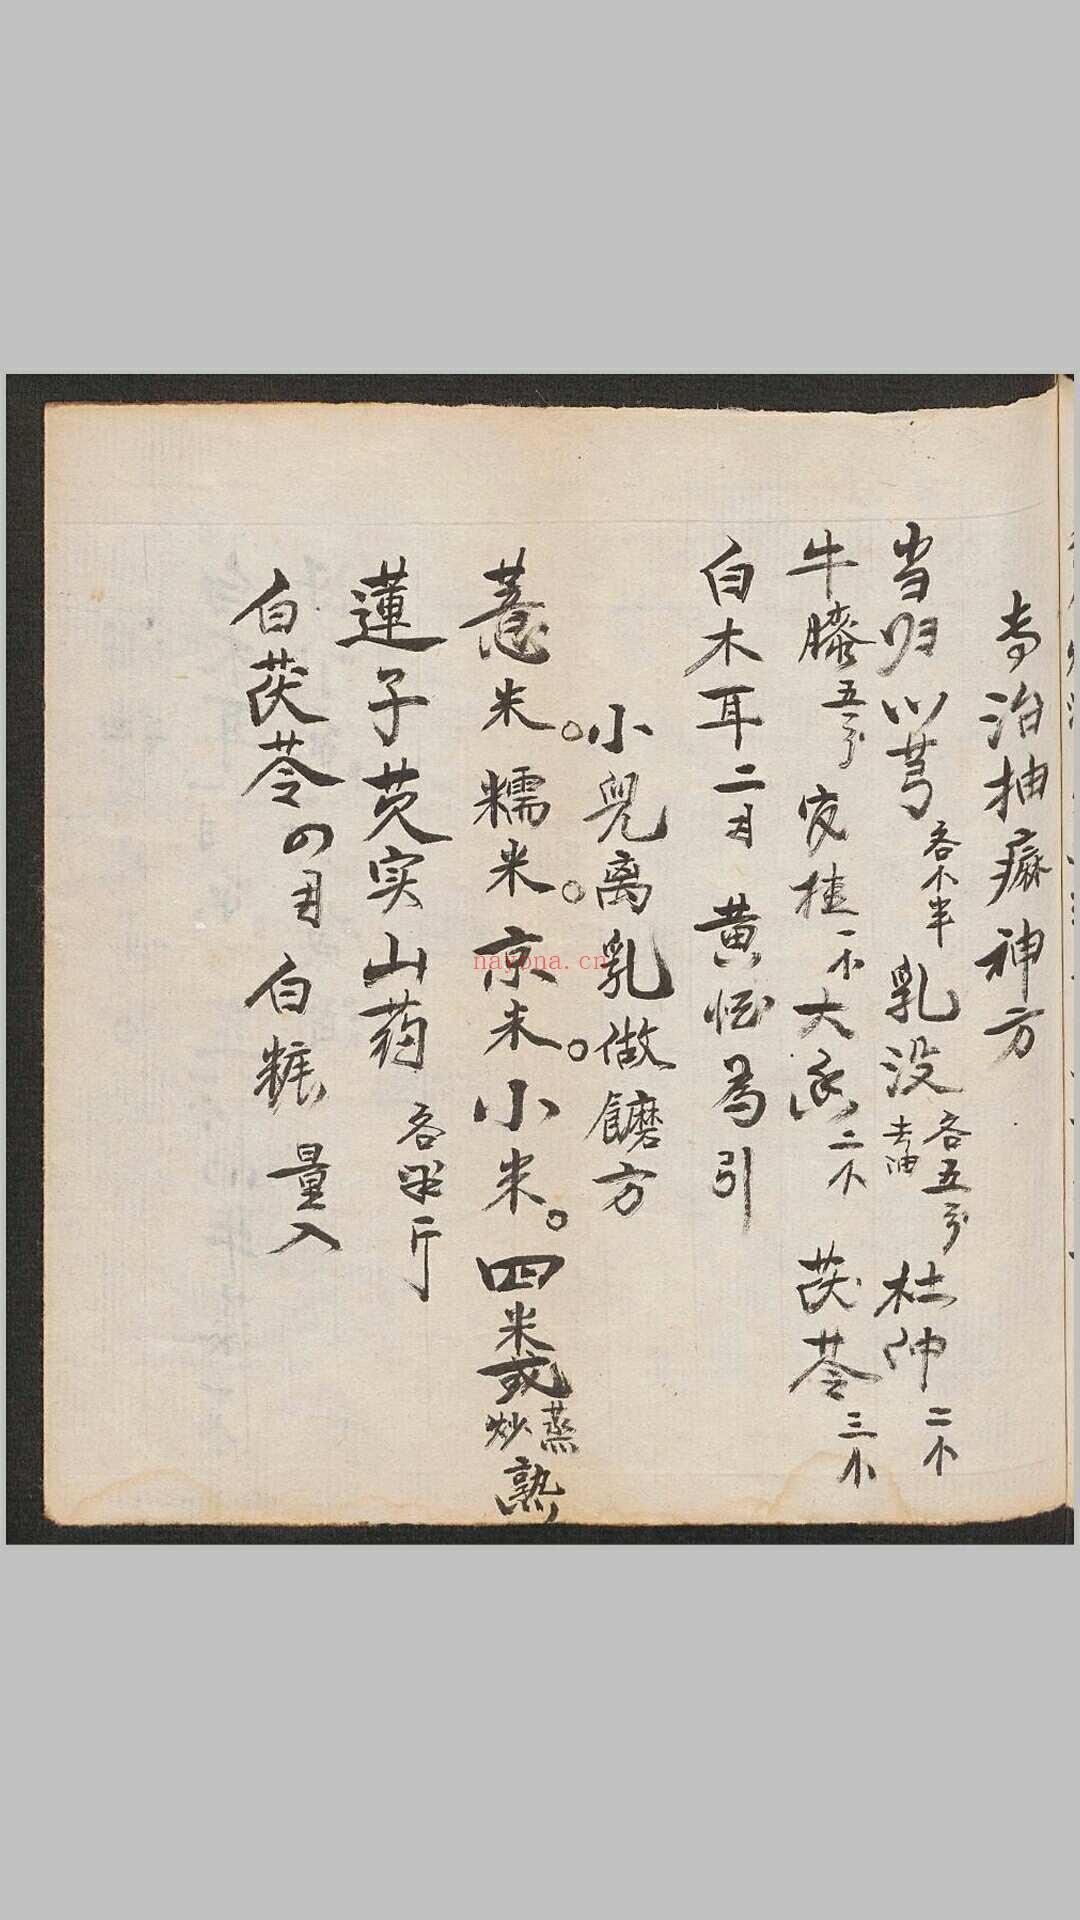 专治抽癍神方
当归 川芎 各个半 乳没 各五分 去油 杜仲 二个
牛膝 五分 皮桂 一个 大医 二个 茯苓 三个
白木耳二月 黄酒为引
小兒离乳做饝方
薏米。糯米。京米。小米。四米或蒸炒熟
蓮子芡实山药 各半斤
白茯苓四月 白糖 量入
nayona.cn